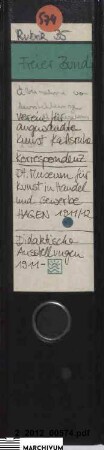 574
Rubr. 35
Freier Bund
Übernahme von
Ausstellungen
Verein für
angewandte
Kunst Karlsruhe
Korrespondenz
Dt. Museum für
Kunst in Handel
und Gewerbe
HAGEN 1911/12
Didaktische
Ausstellungen
1911-
2_2012_00574.pdf
MARCHIVUM